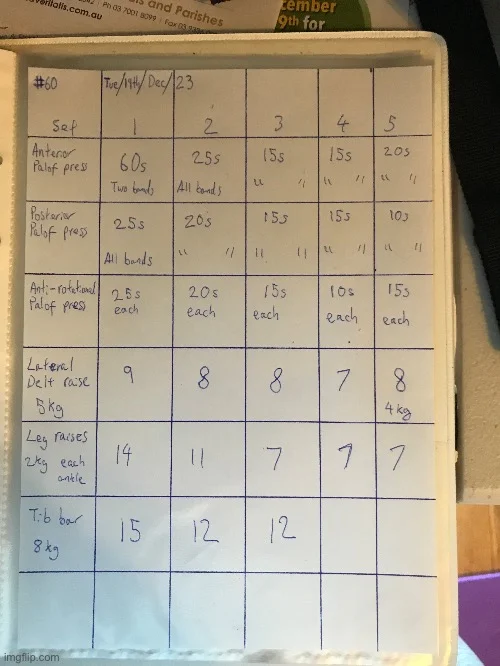 and Parishes
Ph 03 7001 8099 | Fax 03
cember
9th for
#60 Tue/19th/Dec/23
Set 1 2 3 4 5
Anterior
Palof press
60s 25s 15s 15s 20s
Two bands All bands " " " " " "
Posterior
Palof press
25s 20s 15s 15s 10s
All bands " " " " " " " "
Anti-rotational
Palof press
25s 20s 15s 10s 15s
each each each each each
Lateral
Delt raise
5kg
9 8 8 7 8
4kg
Leg raises
2kg each
ankle
14 11 7 7 7
Tib bar
8kg
15 12 12
imgflip.com